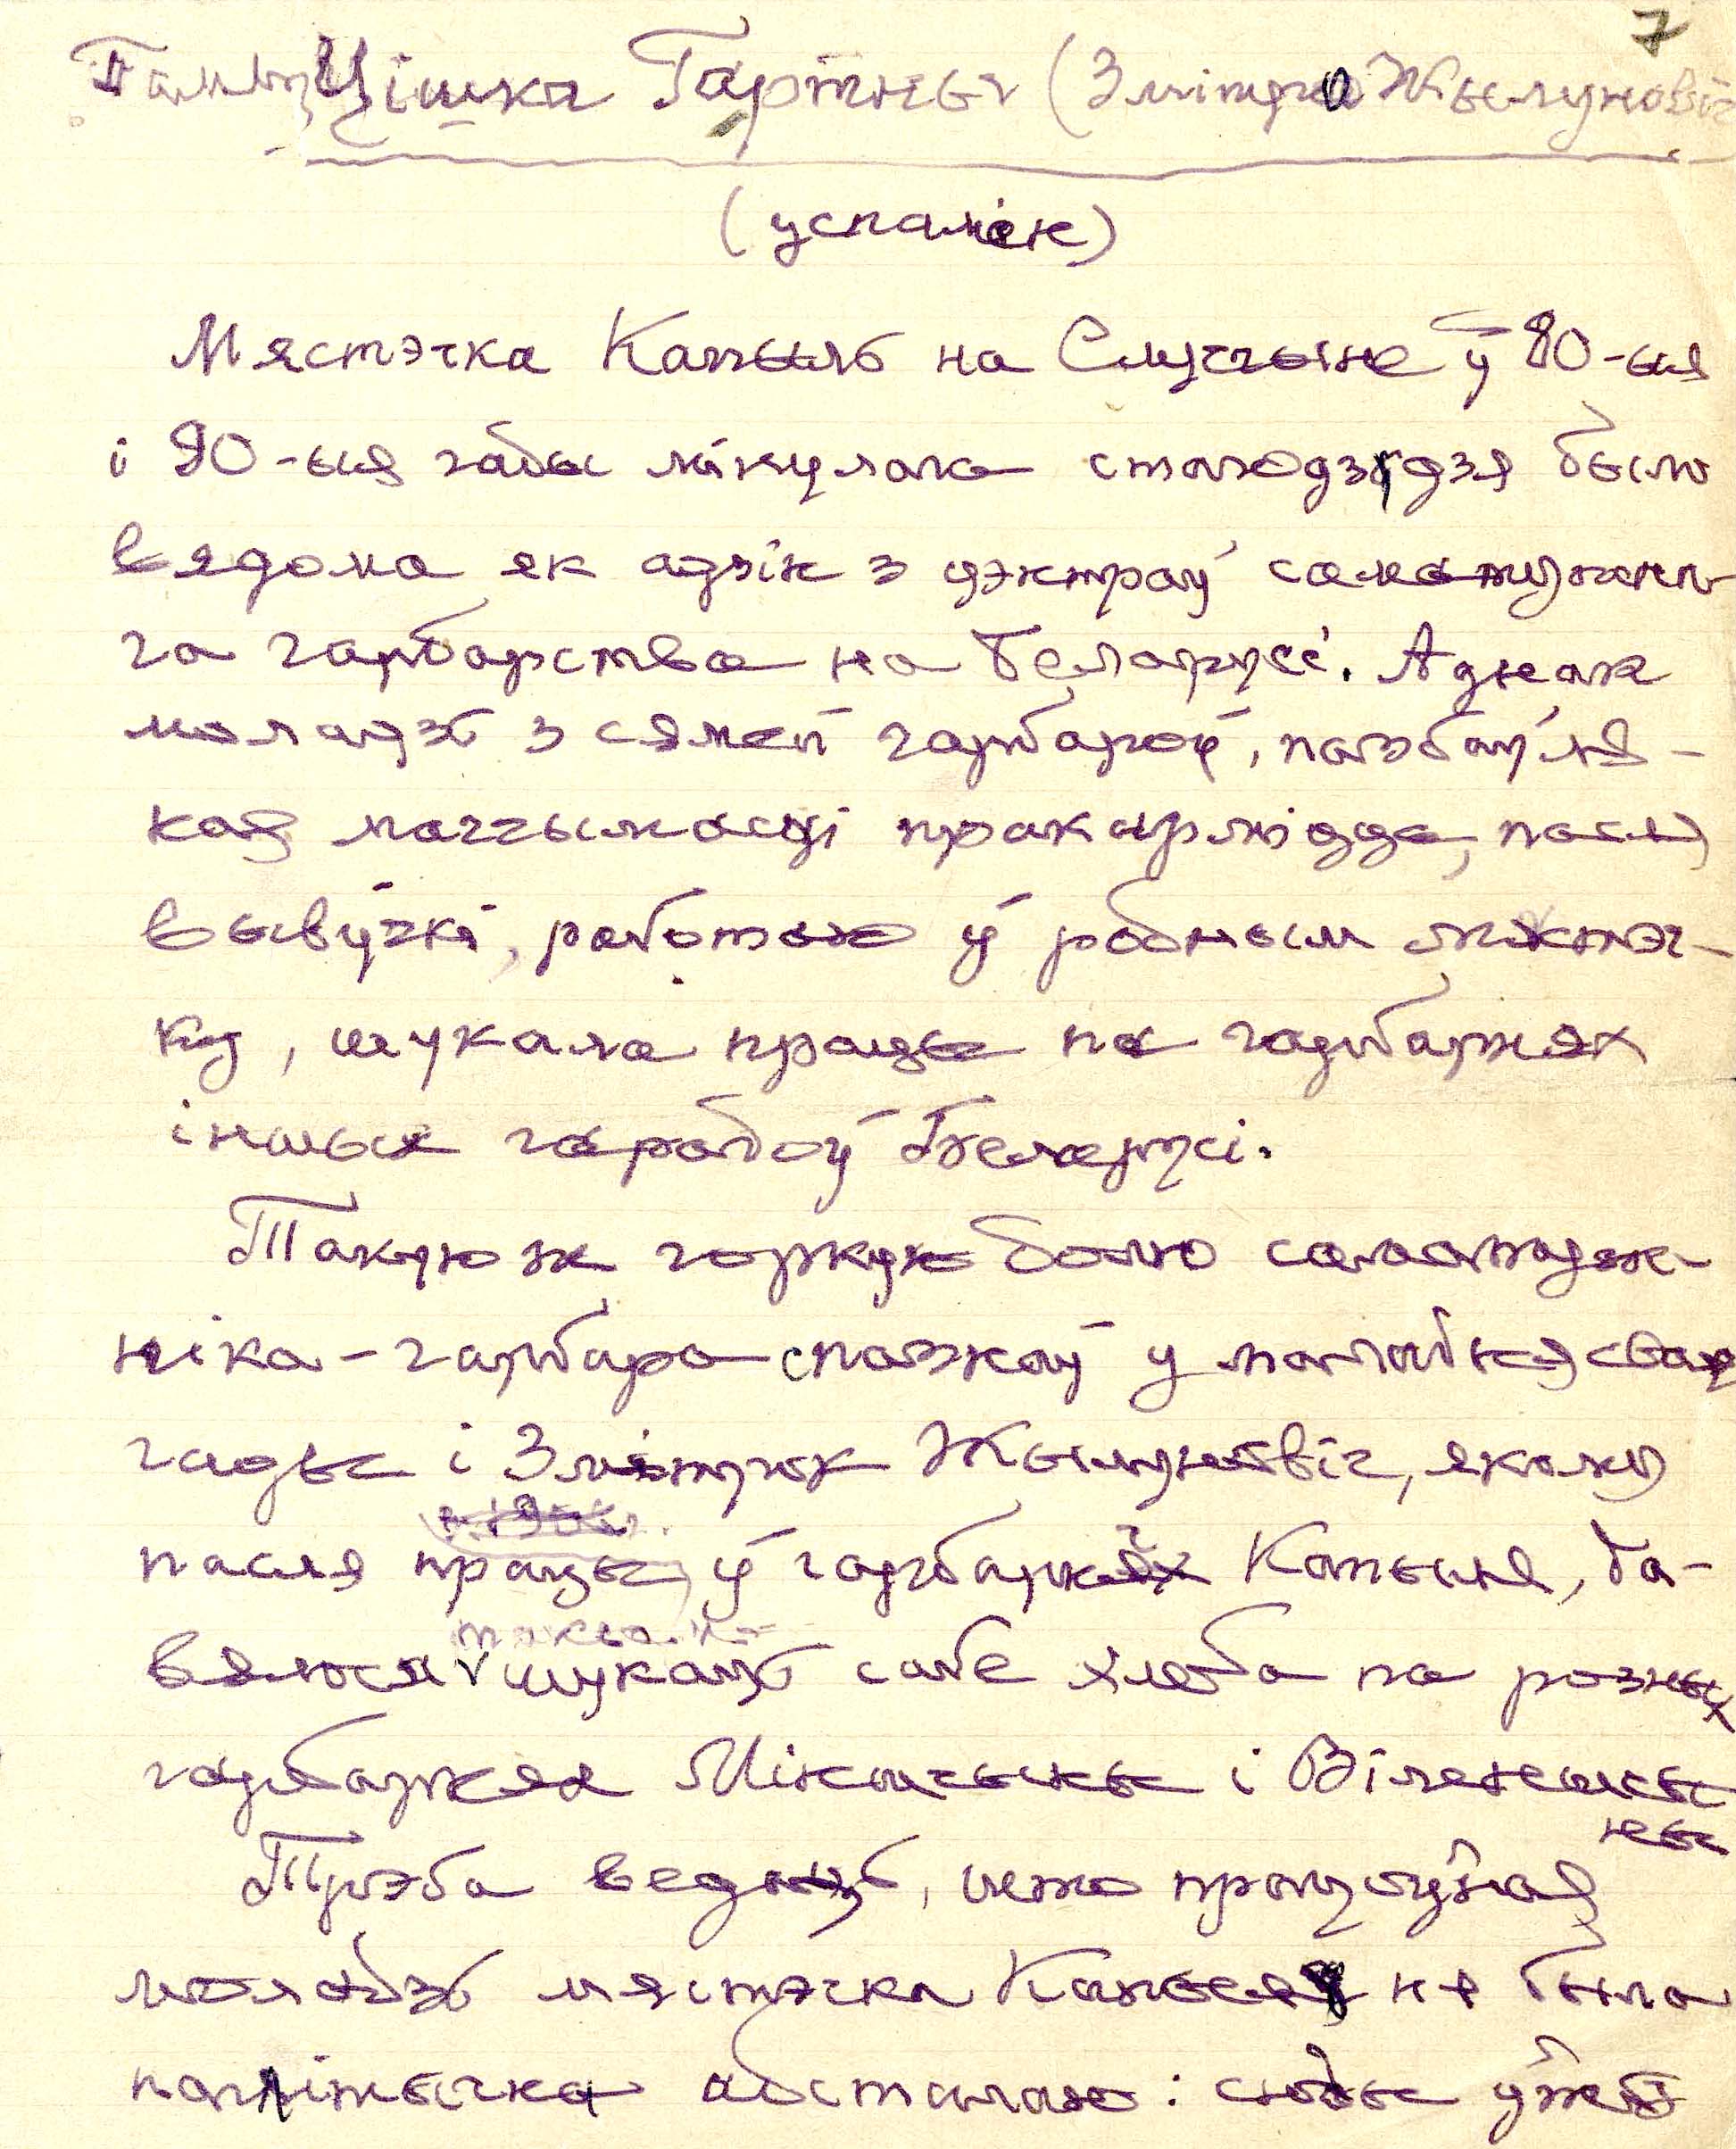 Цішка Гартны (Зміцра Жылуновіч
7
(успамін)
Мястэчка Капыль на Случчыне ў 80-ыя
і 90-ыя гады мінулага стагодздзя было
вядома як адзін з цэнтраў саматужна-
га гарбарства на Беларусі. Аднак
моладзь з сямей гарбароў, пазбаўле-
ная магчымасці пракарміцца, пасля
вывучкі, работаю ў родным мястэч-
ку, шукала працы па гарбарнях
іншых гарадоў Беларусі.
Такую ж горкую долю саматуж-
ніка-гарбара спазнаў у маладыя свае
гады і Змітрок Жылуновіч, якому
пасля працы ў гарбарнях Капыля, да-
вялося шукаць сабе хлеба па розных
гарбарнях Міншчыны і Віленшчы-
ны
Трэба ведаць, што працоўная
моладзь мястэчка Капыля не была
палітычна адсталаю: сюды ўжо